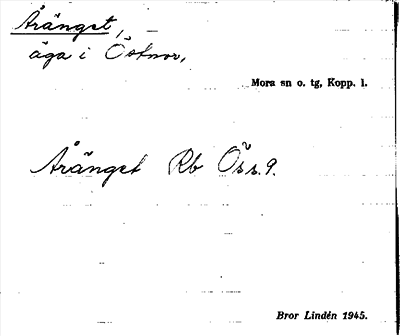 Åränget, –
äga i Östnor,
Mora sn o. tg, Kopp. l.
Åränget Rb Ös s. 9.
Bror Lindén 1945.